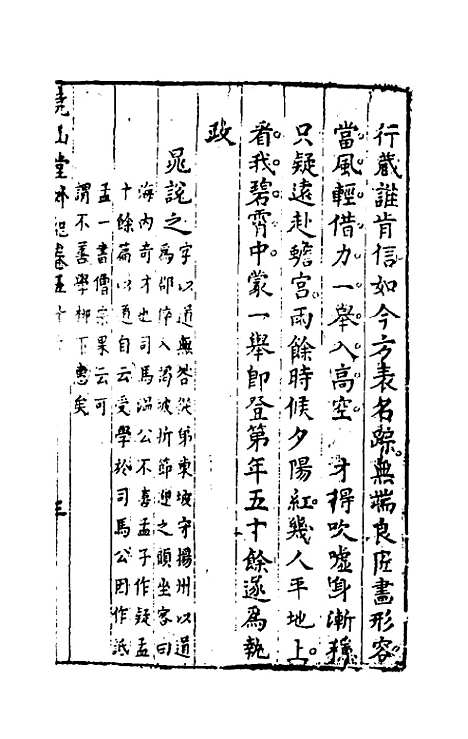 行藏誰肯信如今方表名踪無端良匠畫形容
當風輕借力一舉入高空 才得吹噓身漸穩
只疑遠赴蟾宮雨餘時候夕陽紅幾人平地上
看我碧霄中蒙一舉即登第年五十餘遂為執
政
晁說之字以道無咎從弟東坡守揚州以道
為郡倅入謁坡折節迎之顧坐客曰
海內奇才也司馬溫公不喜孟子作疑孟
十餘篇以道自云受學於司馬公因作詆
孟一書僧宗杲云可
謂不善學柳下惠矣
堯山堂外紀卷五十 三